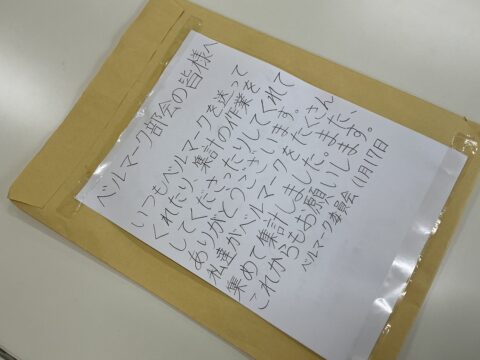 ベルマーク部会の皆様へ
いつもベルマークを送って
くれたり、集計の作業を
してくださったりしてくれて
ありがとうございます。
私達がベルマークをたくさん
集めて集計しました。
これからもお願いします。
ベルマーク委員会 11月17日